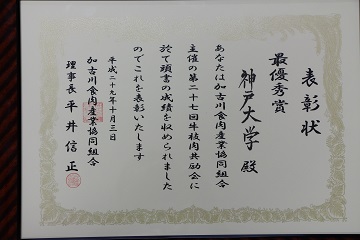 表彰状
最優秀賞
神戸大学 殿
あなたは加古川食肉産業協同組合
主催の第二十七回牛枝肉共励会に
於て頭書の成績を収められました
のでこれを表彰いたします
平成二十九年十月三日
加古川食肉産業協同組合
理事長 平井信正